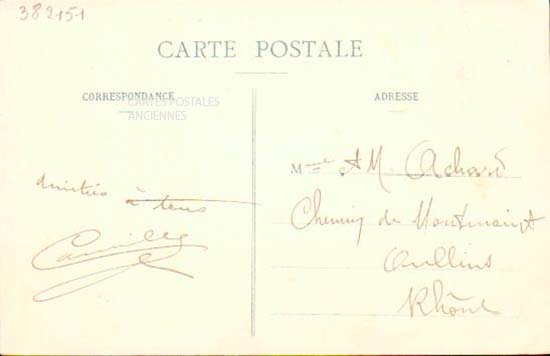 382151
CARTE POSTALE
CORRESPONDANCE
CARTES POSTALES
ANCIENNES
ADRESSE
Amitiés à tous
Camille
Mme AM Achard
Chemin de Montmein
Oullins
Rhône